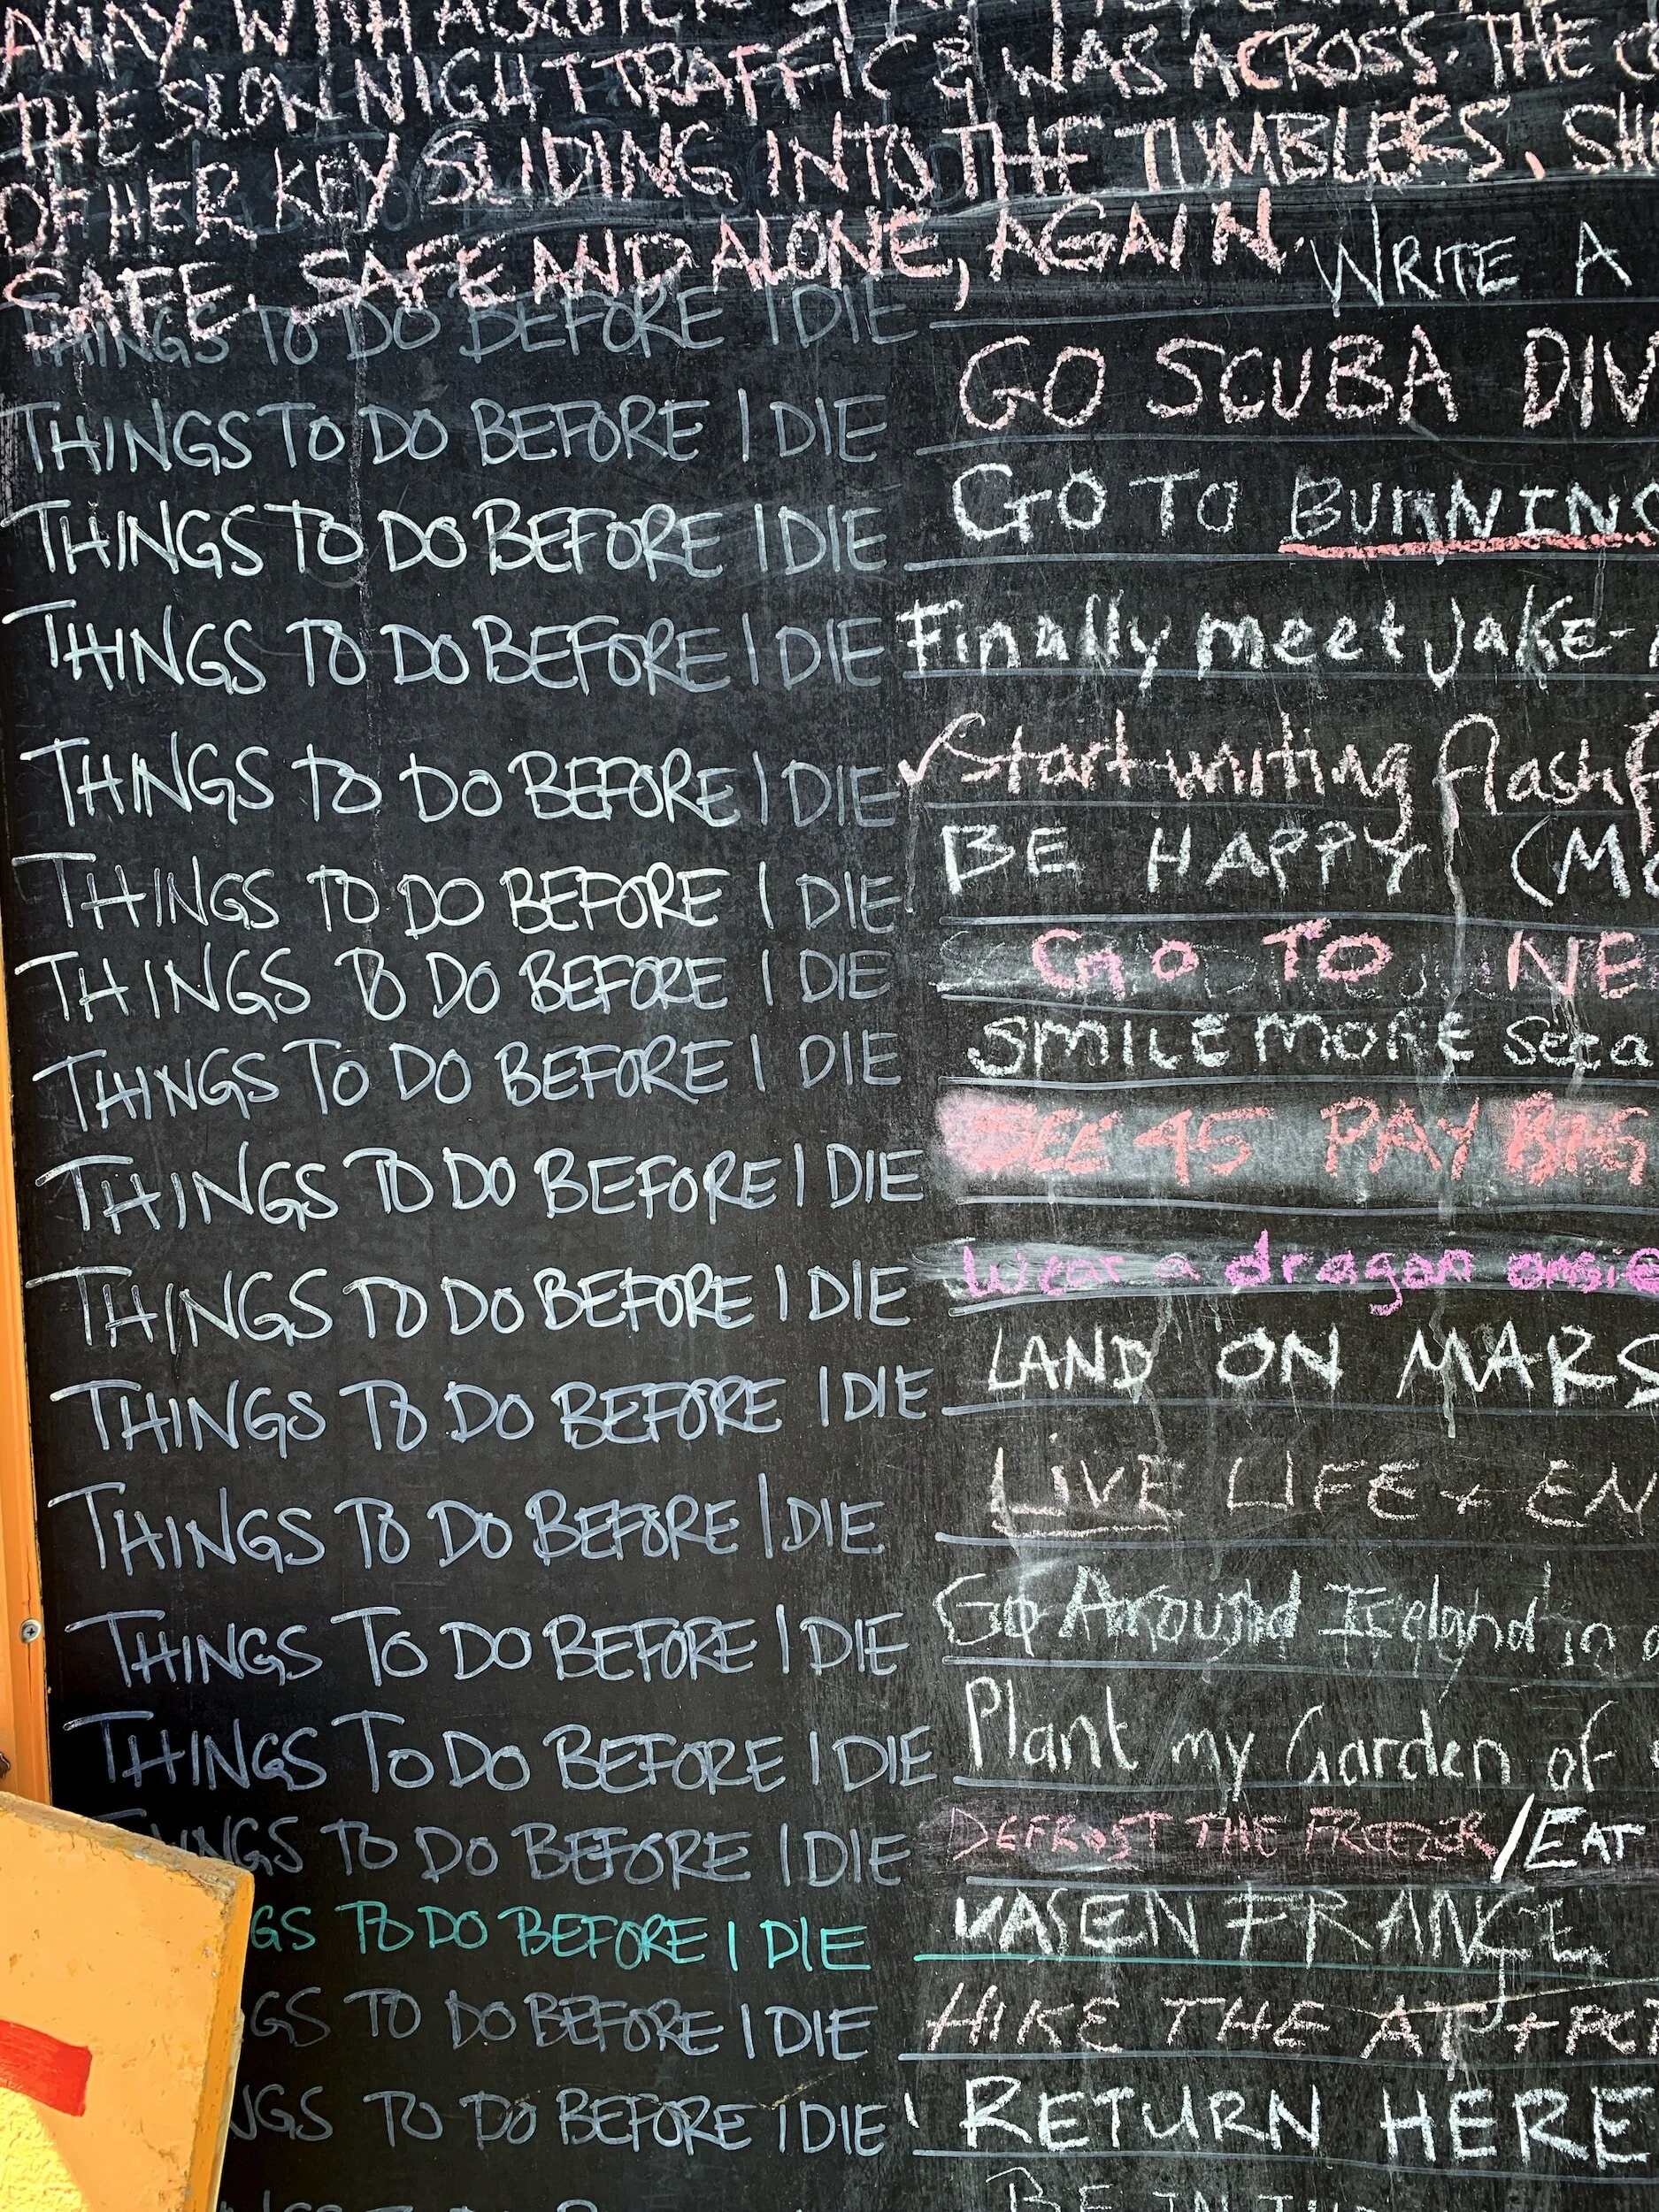 AWAY. WITH
THE SLOW NIGHT TRAFFIC & WAS ACROSS. THE
OF HER KEY SLIDING INTO THE TUMBLERS. SH
SAFE. SAFE AND ALONE, AGAIN.
THINGS TO DO BEFORE I DIE WRITE A
THINGS TO DO BEFORE I DIE GO SCUBA DIV
THINGS TO DO BEFORE I DIE GO TO BURNING
THINGS TO DO BEFORE I DIE Finally meet Jake-
THINGS TO DO BEFORE I DIE ✓ Start writing flash f
THINGS TO DO BEFORE I DIE BE HAPPY (MO
THINGS TO DO BEFORE I DIE GO TO NE
THINGS TO DO BEFORE I DIE SMILE MORE
THINGS TO DO BEFORE I DIE SEE 45 PAY BIG
THINGS TO DO BEFORE I DIE Wear a dragon onsie
THINGS TO DO BEFORE I DIE LAND ON MARS
THINGS TO DO BEFORE I DIE LIVE LIFE + EN
THINGS TO DO BEFORE I DIE Go Around Iceland in a
THINGS TO DO BEFORE I DIE Plant my Garden of
NGS TO DO BEFORE I DIE DEFROST THE FREEZER / EAT
GS TO DO BEFORE I DIE VASEN FRANCE
GS TO DO BEFORE I DIE HIKE THE AT +
NGS TO DO BEFORE I DIE RETURN HERE
BE IN